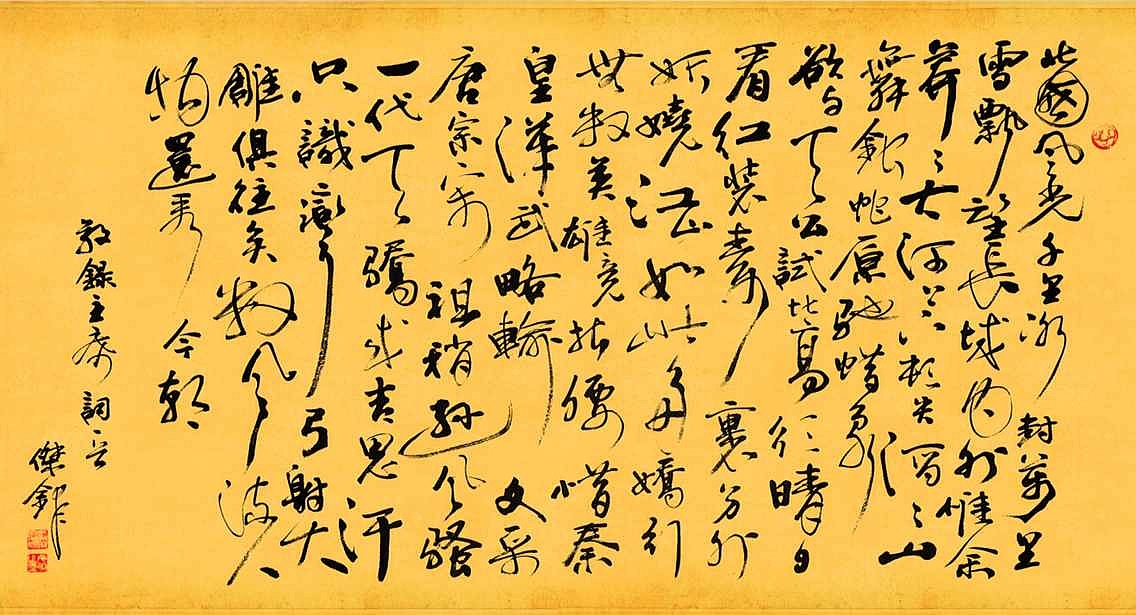 北國风光千里冰封萬里
雪飄望長城内外惟余
莽莽大河上下頓失滔滔山
舞銀蛇原馳蜡象
欲与天公試比高須晴日
看紅裝素裹分外
妖嬈江山如此多嬌引
無数英雄竞折腰惜秦
皇漢武略輸文采
唐宗宋祖稍遜风騷
一代天驕成吉思汗
只識彎弓射大
雕俱往矣数风流人
物還看今朝
敬錄主席詞
傑